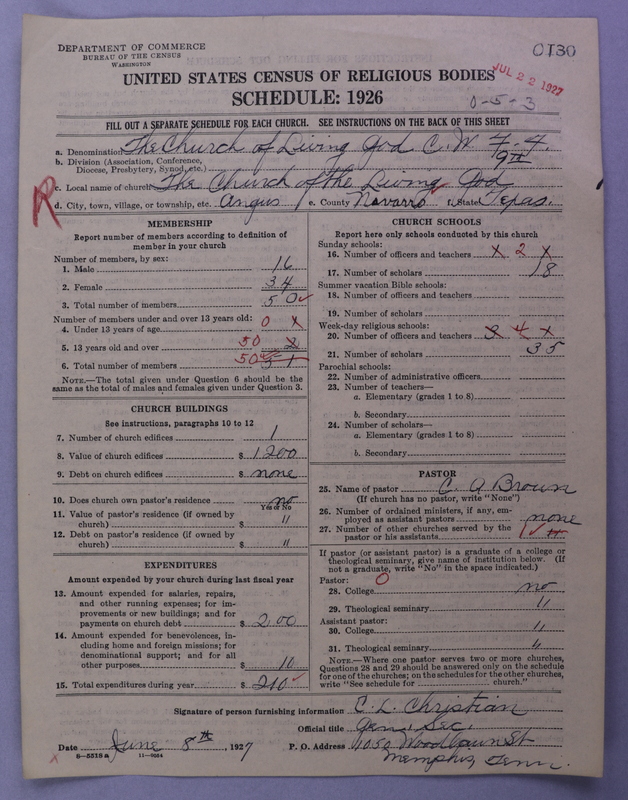 DEPARTMENT OF COMMERCE
BUREAU OF THE CENSUS
WASHINGTON
0130
JUL 22 1927
0-5-3
UNITED STATES CENSUS OF RELIGIOUS BODIES
SCHEDULE: 1926
FILL OUT A SEPARATE SCHEDULE FOR EACH CHURCH. SEE INSTRUCTIONS ON THE BACK OF THIS SHEET
a. Denomination The Church of Living God C. W. F. F.
b. Division (Association, Conference, Diocese, Presbytery, Synod, etc.) 9th
c. Local name of church The Church of the Living God
R
d. City, town, village, or township, etc. Angus e. County Navarro f. State Texas.
MEMBERSHIP
Report number of members according to definition of
member in your church
Number of members, by sex:
1. Male 16
2. Female 34
3. Total number of members 50
Number of members under and over 13 years old:
4. Under 13 years of age 0 x
5. 13 years old and over 50 2
6. Total number of members 50 51
NOTE.—The total given under Question 6 should be
same as the total of males and females given under Question 3.
CHURCH BUILDINGS
See instructions, paragraphs 10 to 12
7. Number of church edifices 1
8. Value of church edifices $ 1200
9. Debt on church edifices $ none
10. Does church own pastor's residence no
Yes or No
11. Value of pastor's residence (if owned by
church) $ "
12. Debt on pastor's residence (if owned by
church) $ "
EXPENDITURES
Amount expended by your church during last fiscal year
13. Amount expended for salaries, repairs,
and other running expenses; for im-
provements or new buildings; and for
payments on church debt $ 200
14. Amount expended for benevolences, in-
cluding home and foreign missions; for
denominational support; and for all
other purposes $ 10
15. Total expenditures during year $ 210
CHURCH SCHOOLS
Report here only schools conducted by this church
Sunday schools:
16. Number of officers and teachers x 2 x
17. Number of scholars 18
Summer vacation Bible schools:
18. Number of officers and teachers
19. Number of scholars
Week-day religious schools:
20. Number of officers and teachers 3 4 x
21. Number of scholars 35
Parochial schools:
22. Number of administrative officers
23. Number of teachers—
a. Elementary (grades 1 to 8)
b. Secondary
24. Number of scholars—
a. Elementary (grades 1 to 8)
b. Secondary
PASTOR
25. Name of pastor C. A Brown
(If church has no pastor, write "None")
26. Number of ordained ministers, if any, em-
ployed as assistant pastors none
27. Number of other churches served by the
pastor or his assistants 1
If pastor (or assistant pastor) is a graduate of a college or
theological seminary, give name of institution below. (If
not a graduate, write "No" in the space indicated.)
Pastor: 0
28. College no
29. Theological seminary "
Assistant pastor:
30. College "
31. Theological seminary "
NOTE.—Where one pastor serves two or more churches,
Questions 28 and 29 should be answered only on the schedule
for one of the churches; on the schedules for the other churches,
write "See schedule for church."
Signature of person furnishing information C. L. Christian
Official title Gen. Sec.
Date June 8th, 1927 P. O. Address 1050 Woodlawn St
Memphis, Tenn.
8-5518a 11-9064